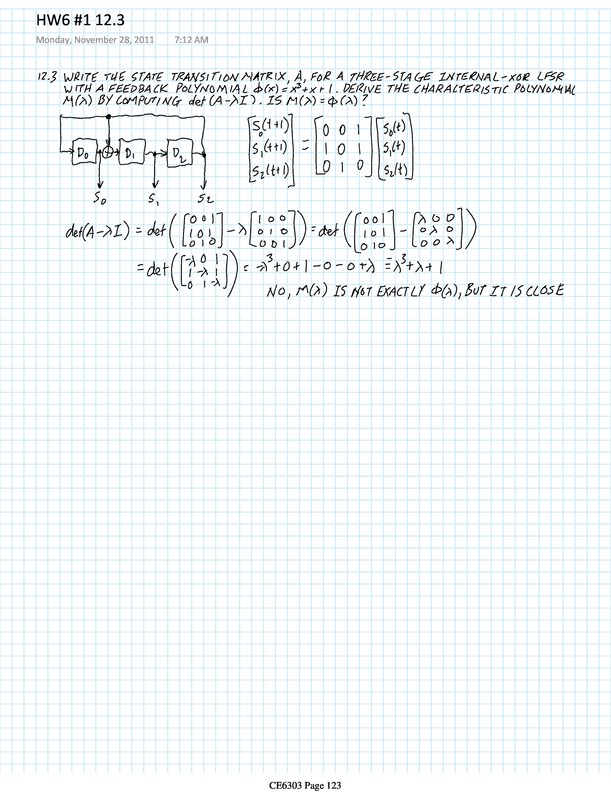 HW6 #1 12.3
Monday, November 28, 2011 7:12 AM
12.3 WRITE THE STATE TRANSITION MATRIX, A, FOR A THREE-STAGE INTERNAL-XOR LFSR
WITH A FEEDBACK POLYNOMIAL Φ(x)=x³+x+1. DERIVE THE CHARACTERISTIC POLYNOMIAL
M(λ) BY COMPUTING det(A-λI). IS M(λ)=Φ(λ)?
D₀ ⊕ D₁ D₂
S₀ S₁ S₂
[S₀(t+1) S₁(t+1) S₂(t+1)] = [0 0 1 1 0 1 0 1 0] [S₀(t) S₁(t) S₂(t)]
det(A-λI) = det([0 0 1 1 0 1 0 1 0] - λ[1 0 0 0 1 0 0 0 1]) = det([0 0 1 1 0 1 0 1 0] - [λ 0 0 0 λ 0 0 0 λ])
= det([-λ 0 1 1 -λ 1 0 1 -λ]) = -λ³+0+1-0-0+λ ≡ λ³+λ+1
NO, M(λ) IS NOT EXACTLY Φ(λ), BUT IT IS CLOSE
CE6303 Page 123